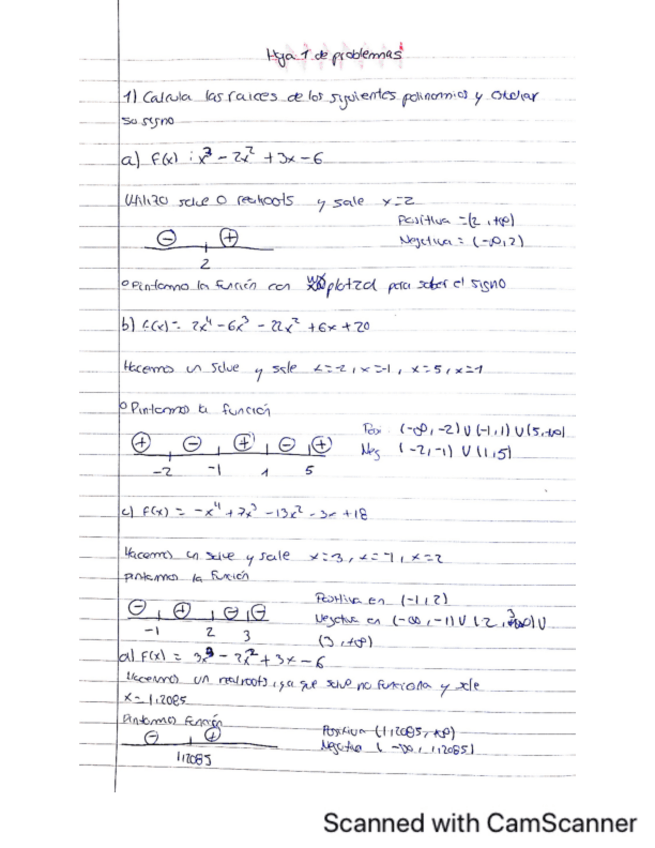 Hoja 1 de problemas
1) Calcula las raíces de los siguientes polinomios y estudiar
su signo
a) f(x) : x³ - 2x² + 3x - 6
Utilizo solve o realroots y sale x=2
Positiva = (2, +∞)
Negativa = (-∞, 2)
⊖ ⊕
2
º Pintamos la función con plot2d para saber el signo
b) f(x) = 2x⁴ - 6x³ - 22x² + 6x + 20
Hacemos un solve y sale x=-2, x=-1, x=5, x=1
º Pintamos la función
Posi. (-∞, -2) ∪ (-1, 1) ∪ (5, +∞)
⊕ ⊖ ⊕ ⊖ ⊕
Neg (-2, -1) ∪ (1, 5)
-2 -1 1 5
c) f(x) = -x⁴ + 7x³ - 13x² - 3x + 18
Hacemos un solve y sale x=3, x=-1, x=2
pintamos la función
Positiva en (-1, 2)
⊖ ⊕ ⊖ ⊖
Negativa en (-∞, -1) ∪ (2, 3) ∪
-1 2 3
(3, +∞)
d) f(x) = 3x³ - 2x² + 3x - 6
Hacemos un realroots, ya que solve no funciona y sale
x = 1,2085
Pintamos función
Positiva (1,2085, +∞)
⊖ ⊕
Negativa (-∞, 1,2085)
1,2085
Scanned with CamScanner